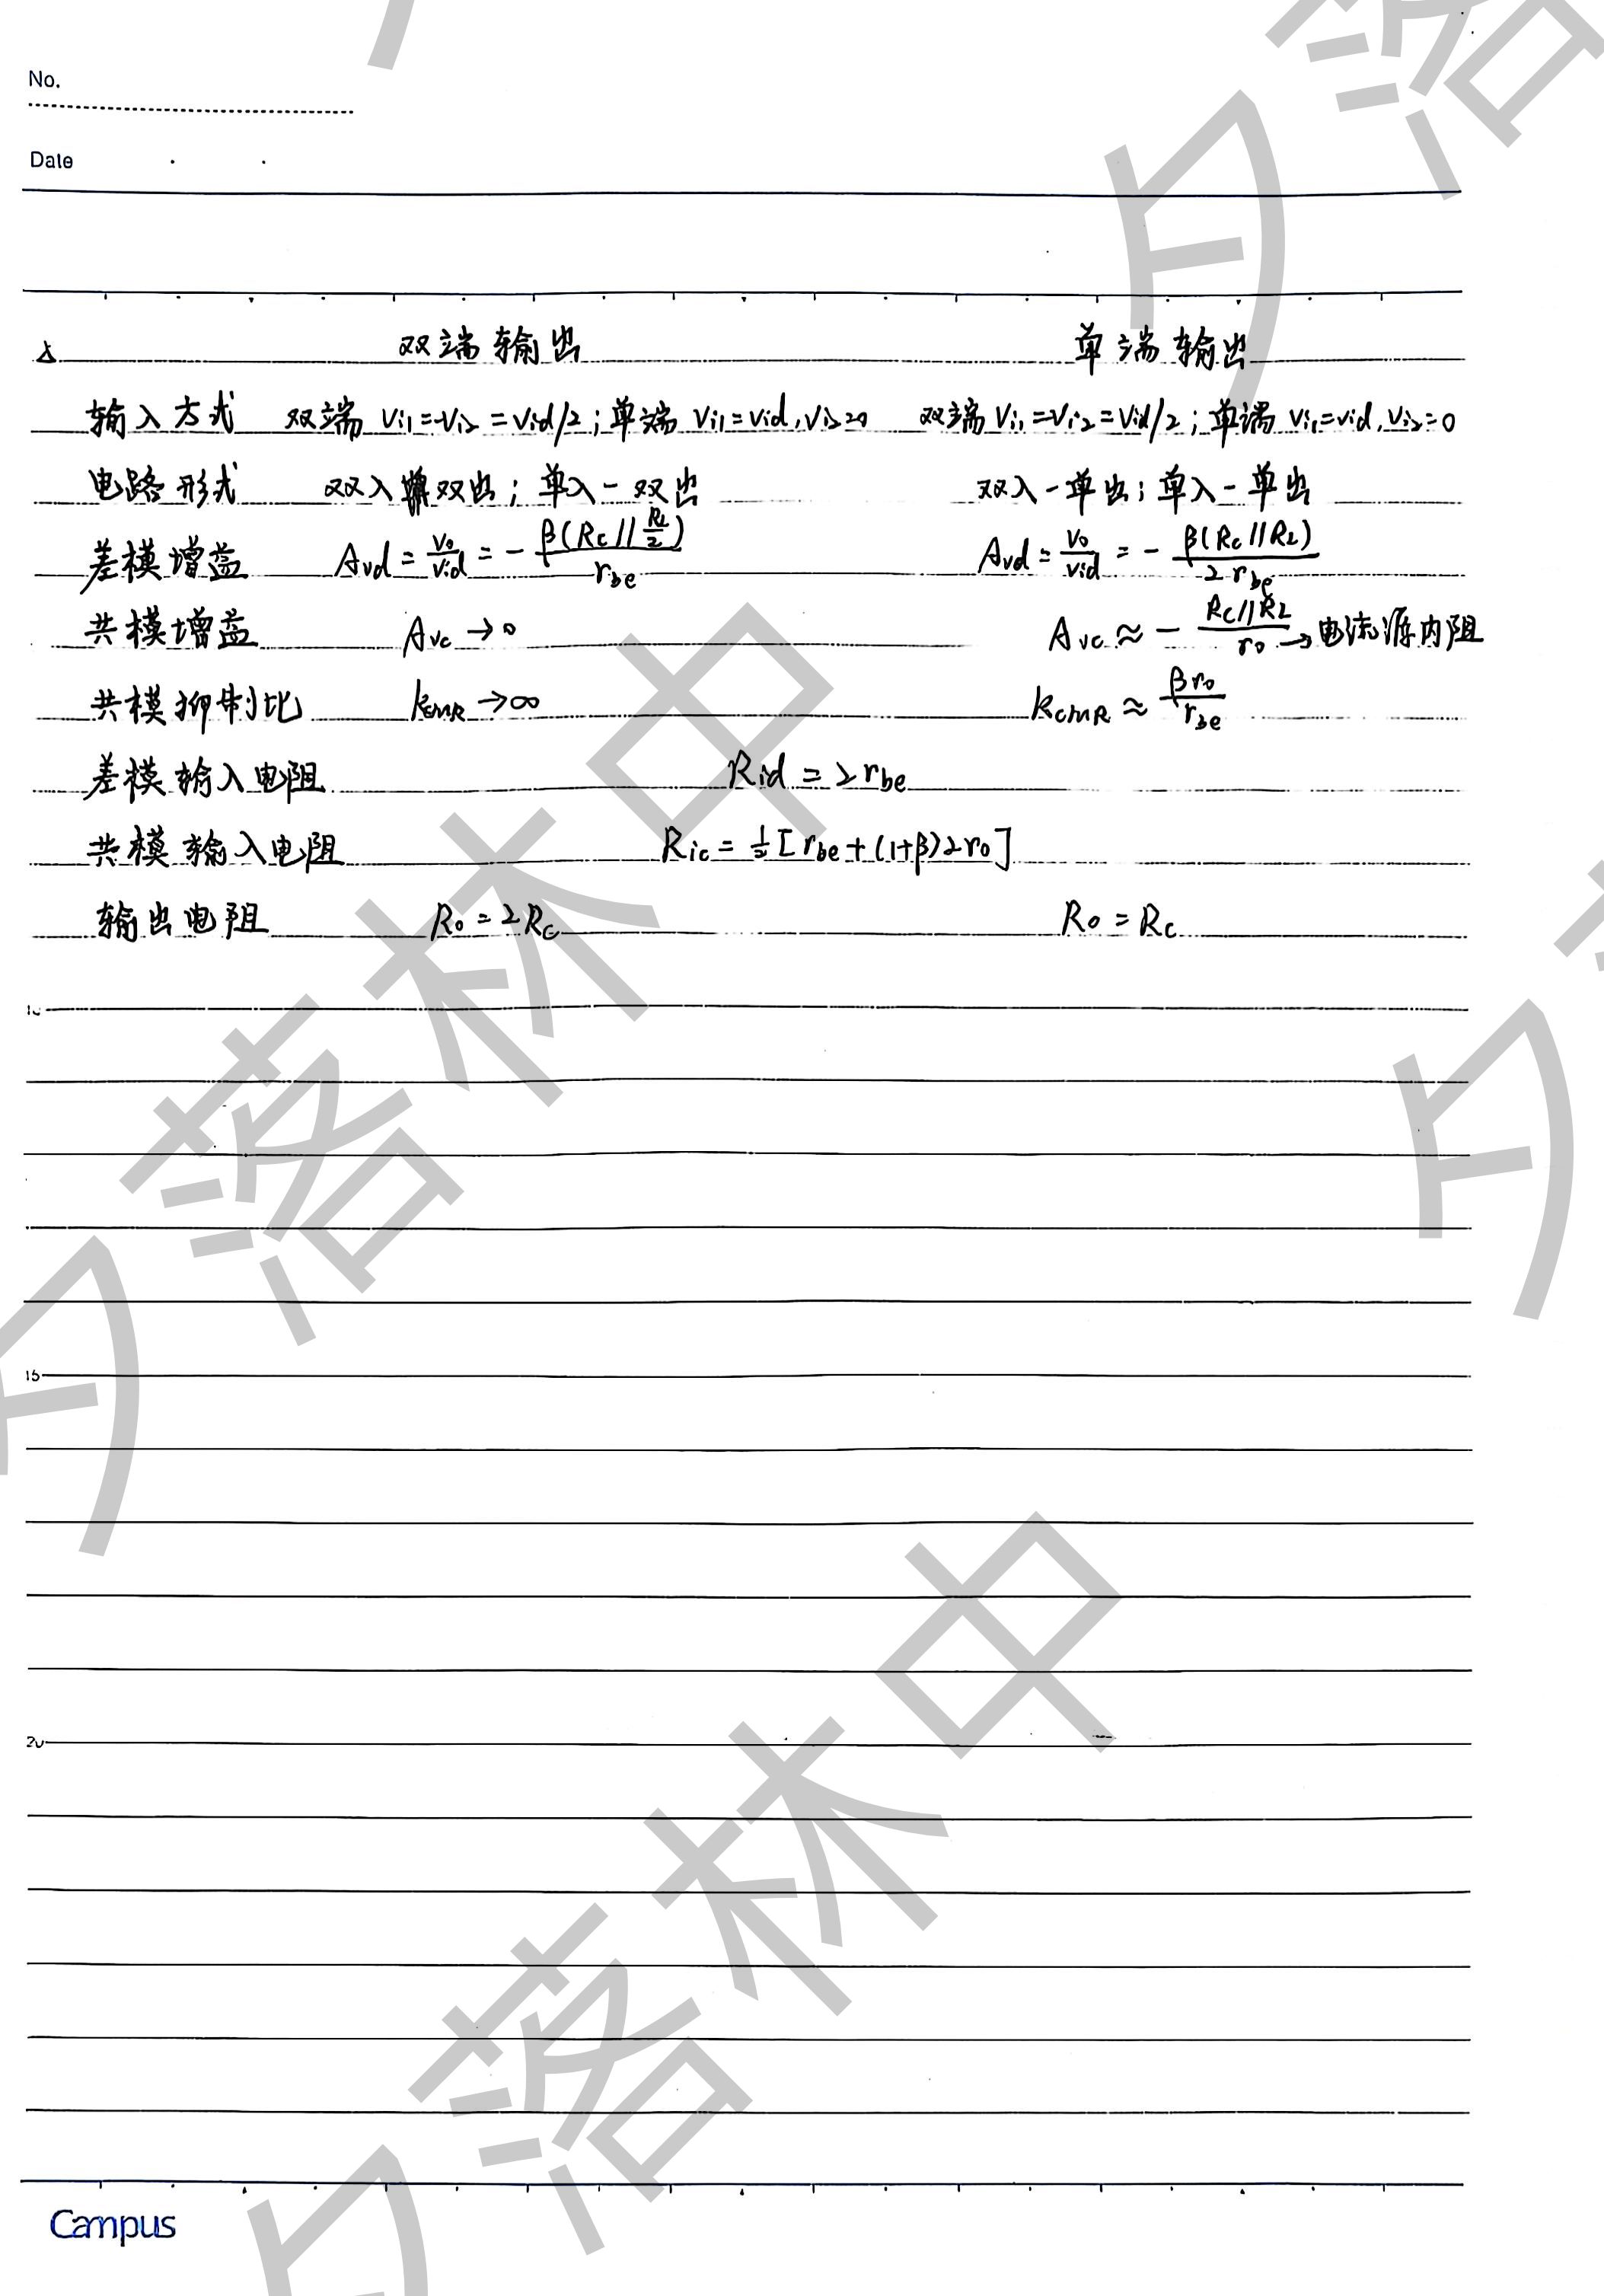 No.
Date
双端输出 单端输出
输入方式 双端 Vi1=-Vi2=Vid/2;单端 Vi1=Vid,Vi2=0 双端 Vi1=-Vi2=Vid/2;单端 Vi1=Vid,Vi2=0
电路形式 双入-双出;单入-双出 双入-单出;单入-单出
差模增益 Avd=Vo/Vid=-β(Rc//RL/2)/rbe Avd=Vo/Vid=-β(Rc//RL)/2rbe
共模增益 Avc→0 Avc≈-Rc//RL/ro→电流源内阻
共模抑制比 KCMR→∞ KCMR≈βro/rbe
差模输入电阻 Rid=2rbe
共模输入电阻 Ric=1/2[rbe+(1+β)2ro]
输出电阻 Ro=2Rc Ro=Rc
15
20
Campus
夕落林中
夕落林中
夕落
夕